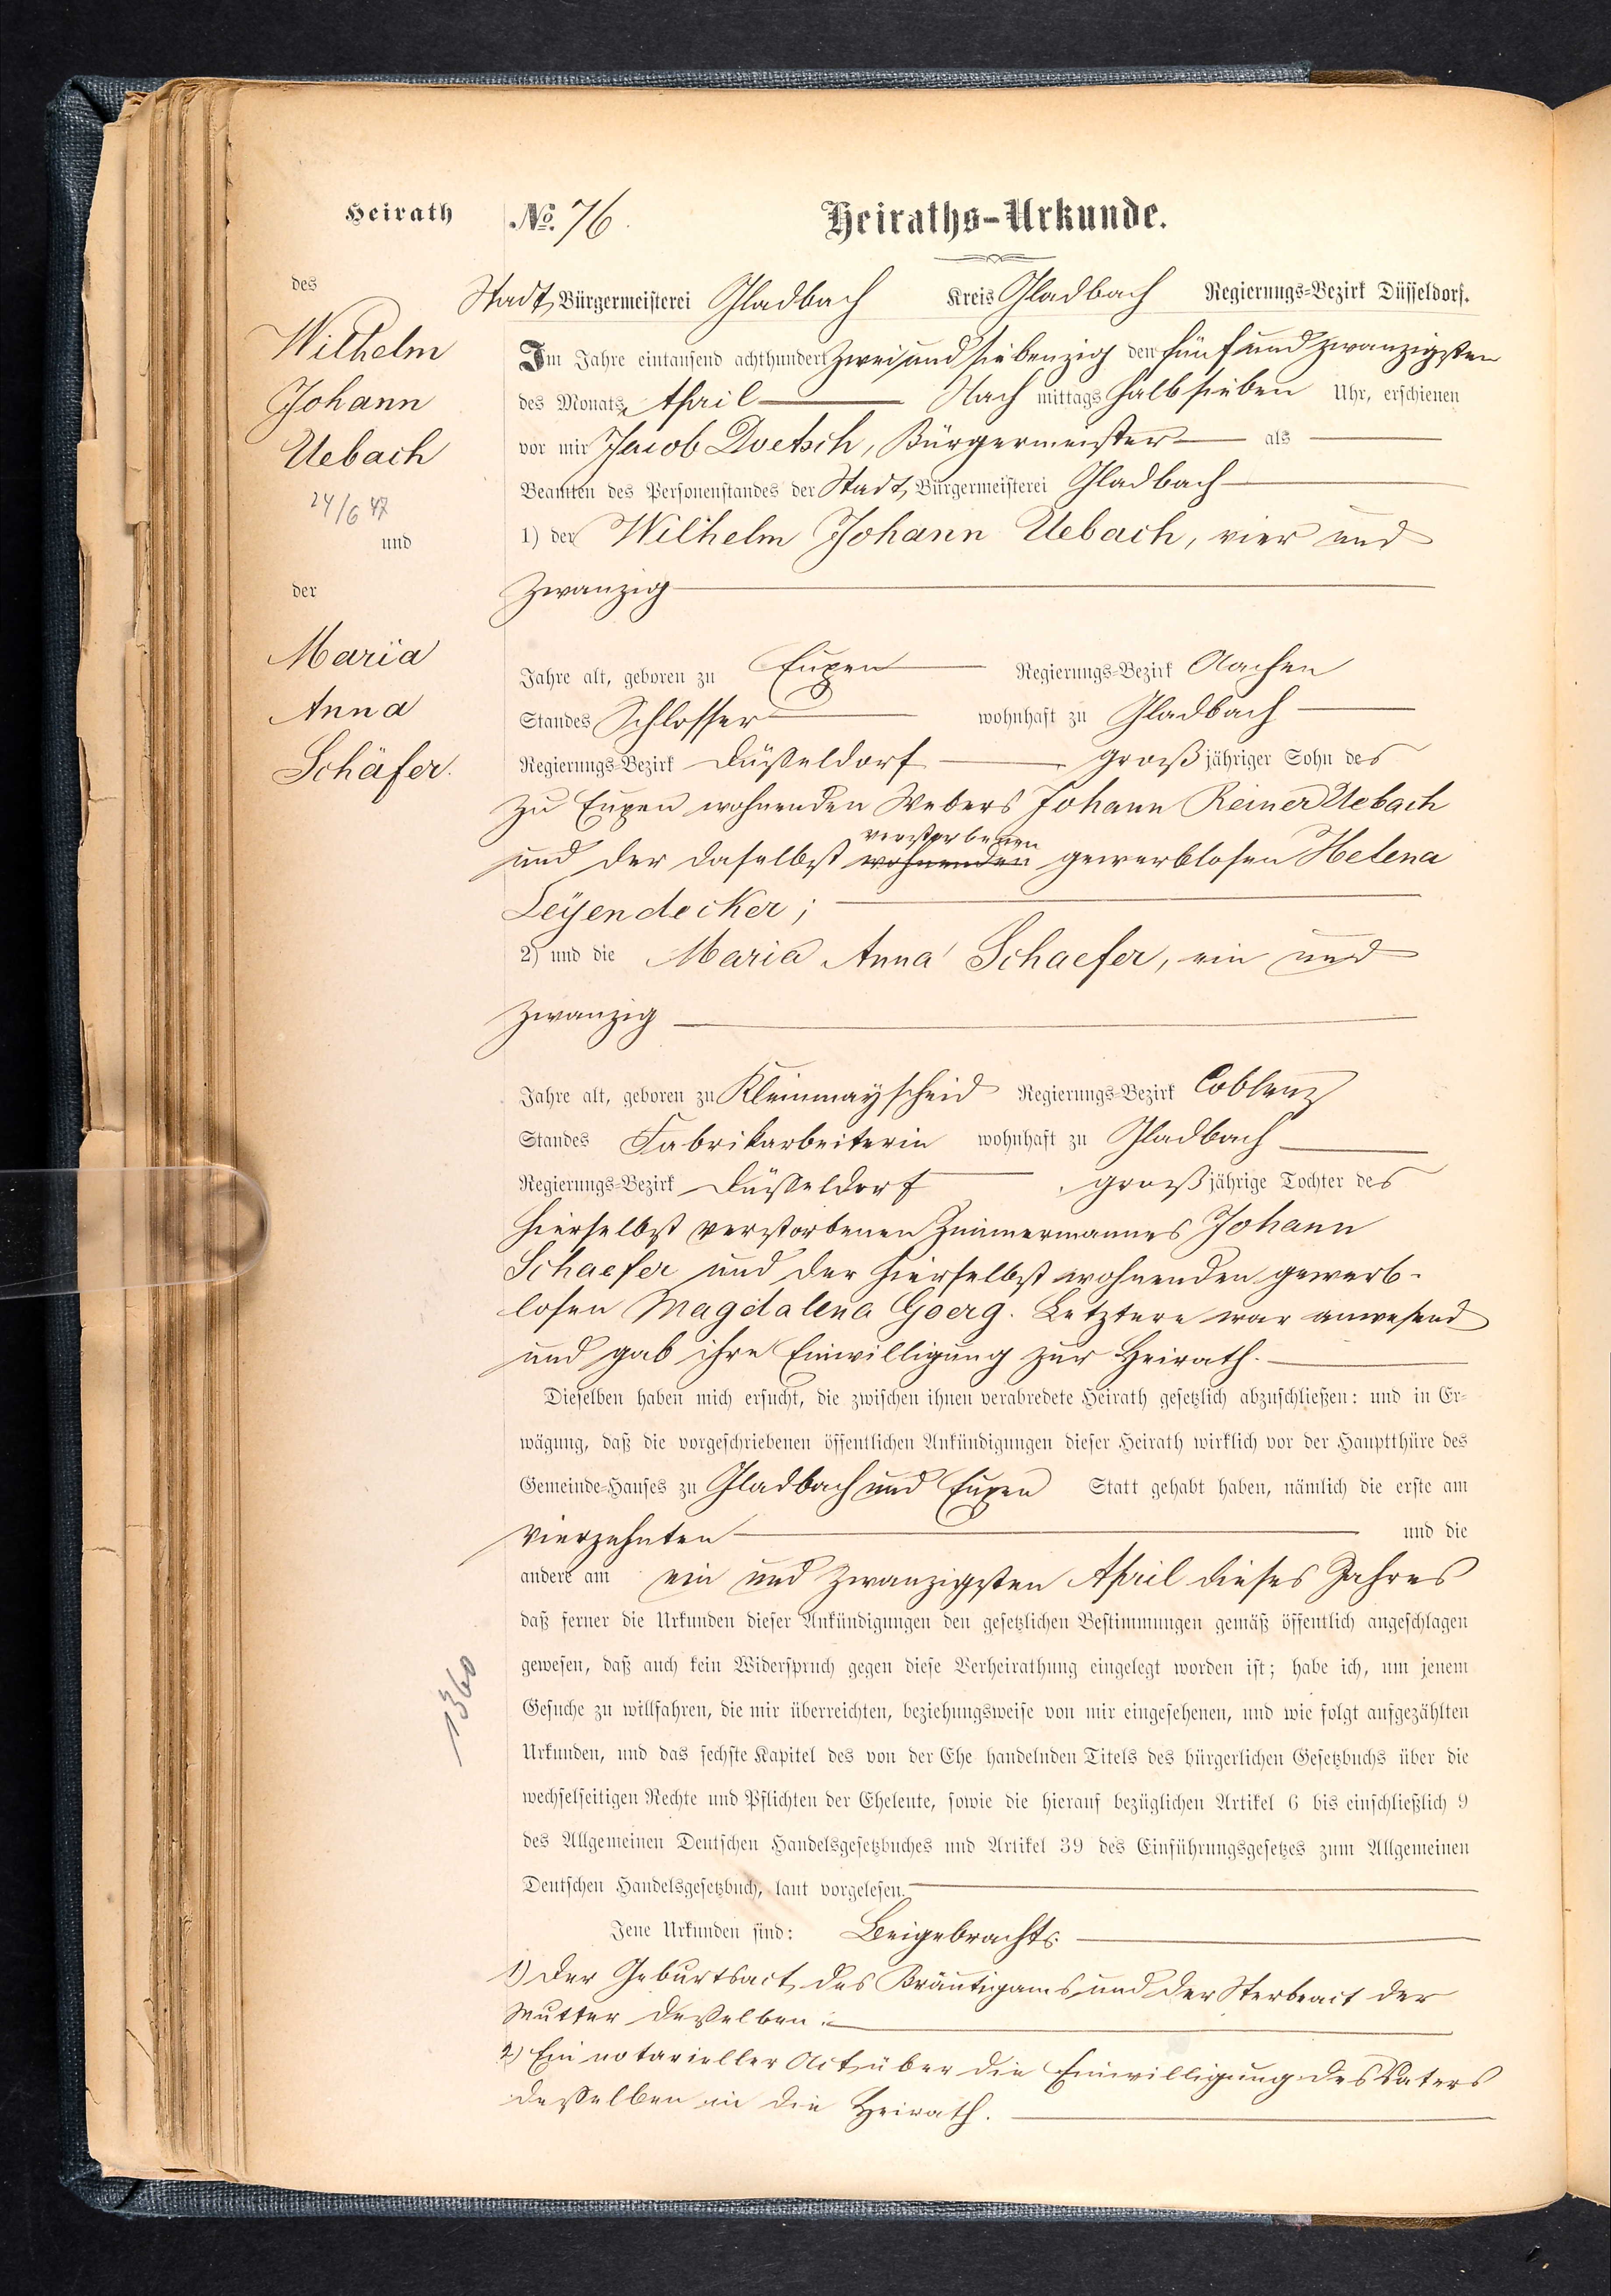 Heirath
des
Wilhelm
Johann
Uebach
24/6 47
und
der
Maria
Anna
Schäfer.
No. 76.
Heiraths-Urkunde.
Stadt, Bürgermeisterei Gladbach Kreis Gladbach Regierungs-Bezirk Düsseldorf.
Im Jahre eintausend achthundert zwei und siebenzig den fünf und zwanzigsten
des Monats April Nach mittags halb sieben Uhr, erschienen
vor mir Jacob Doetsch, Bürgermeister als
Beamten des Personenstandes der Stadt, Bürgermeisterei Gladbach
1) der Wilhelm Johann Uebach, vier und
zwanzig
Jahre alt, geboren zu Eupen Regierungs-Bezirk Aachen
Standes Schlosser wohnhaft zu Gladbach
Regierungs-Bezirk Düsseldorf großjähriger Sohn des
zu Eupen wohnenden Webers Johann Reiner Uebach
verstorbenen
und der daselbst wohnenden gewerblosen Helena
Leÿendecker;
2) und die Maria Anna Schaefer, ein und
zwanzig
Jahre alt, geboren zu Kleinmayscheid Regierungs-Bezirk Coblenz
Standes Fabrikarbeiterin wohnhaft zu Gladbach
Regierungs-Bezirk Düsseldorf großjährige Tochter des
hierselbst verstorbenen Zimmermannes Johann
Schaefer und der hierselbst wohnenden gewerb-
losen Magdalena Goerg. Letztere war anwesend
und gab ihre Einwilligung zur Heirath.
Dieselben haben mich ersucht, die zwischen ihnen verabredete Heirath gesetzlich abzuschließen: und in Er-
wägung, daß die vorgeschriebenen öffentlichen Ankündigungen dieser Heirath wirklich vor der Hauptthüre des
Gemeinde-Hauses zu Gladbach und Eupen Statt gehabt haben, nämlich die erste am
vierzehnten und die
andere am ein und zwanzigsten April dieses Jahres
daß ferner die Urkunden dieser Ankündigungen den gesetzlichen Bestimmungen gemäß öffentlich angeschlagen
gewesen, daß auch kein Widerspruch gegen diese Verheirathung eingelegt worden ist; habe ich, um jenem
Gesuche zu willfahren, die mir überreichten, beziehungsweise von mir eingesehenen, und wie folgt aufgezählten
Urkunden, und das sechste Kapitel des von der Ehe handelnden Titels des bürgerlichen Gesetzbuchs über die
wechselseitigen Rechte und Pflichten der Eheleute, sowie die hierauf bezüglichen Artikel 6 bis einschließlich 9
des Allgemeinen Deutschen Handelsgesetzbuches und Artikel 39 des Einführungsgesetzes zum Allgemeinen
Deutschen Handelsgesetzbuch, laut vorgelesen.
1360
Jene Urkunden sind: Beigebrachts
1) Der Geburtsact des Bräutigams und der Sterbeact der
Mutter desselben.
2) Ein notarieller Act über die Einwilligung des Vaters
desselben in die Heirath.